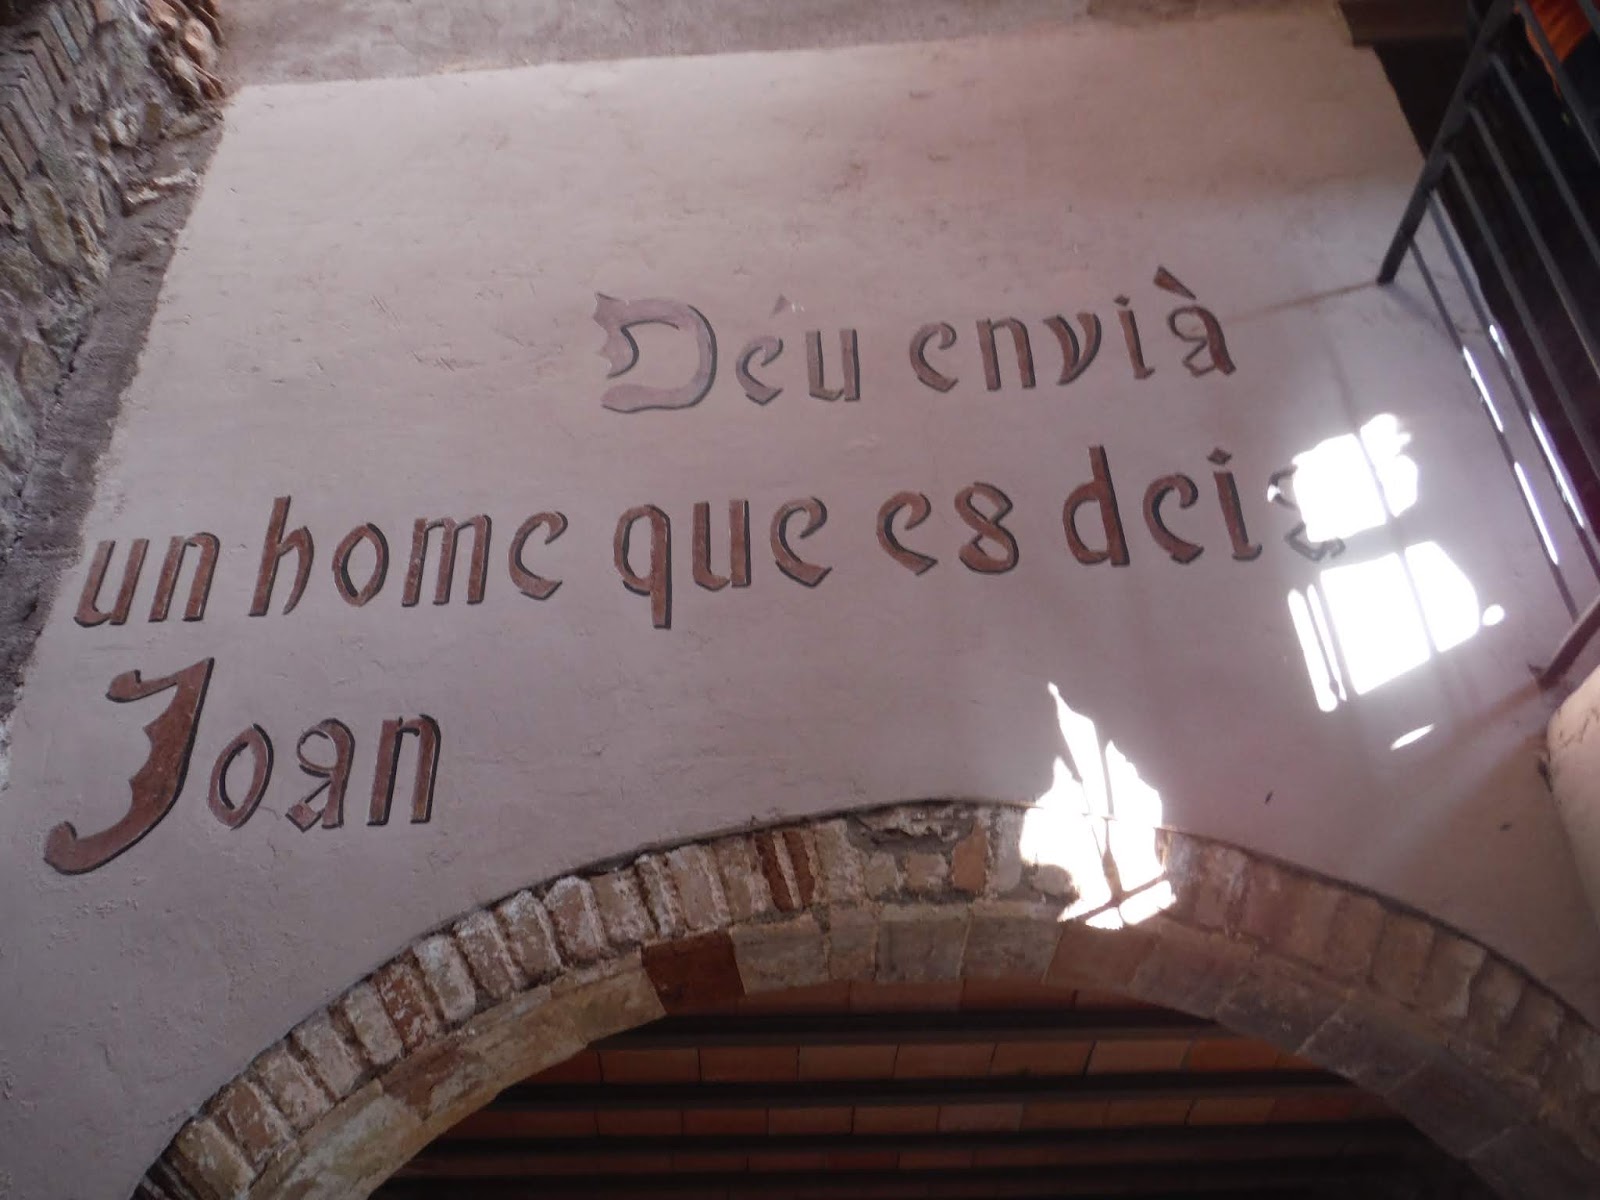 Déu envià
un home que es deis
Joan